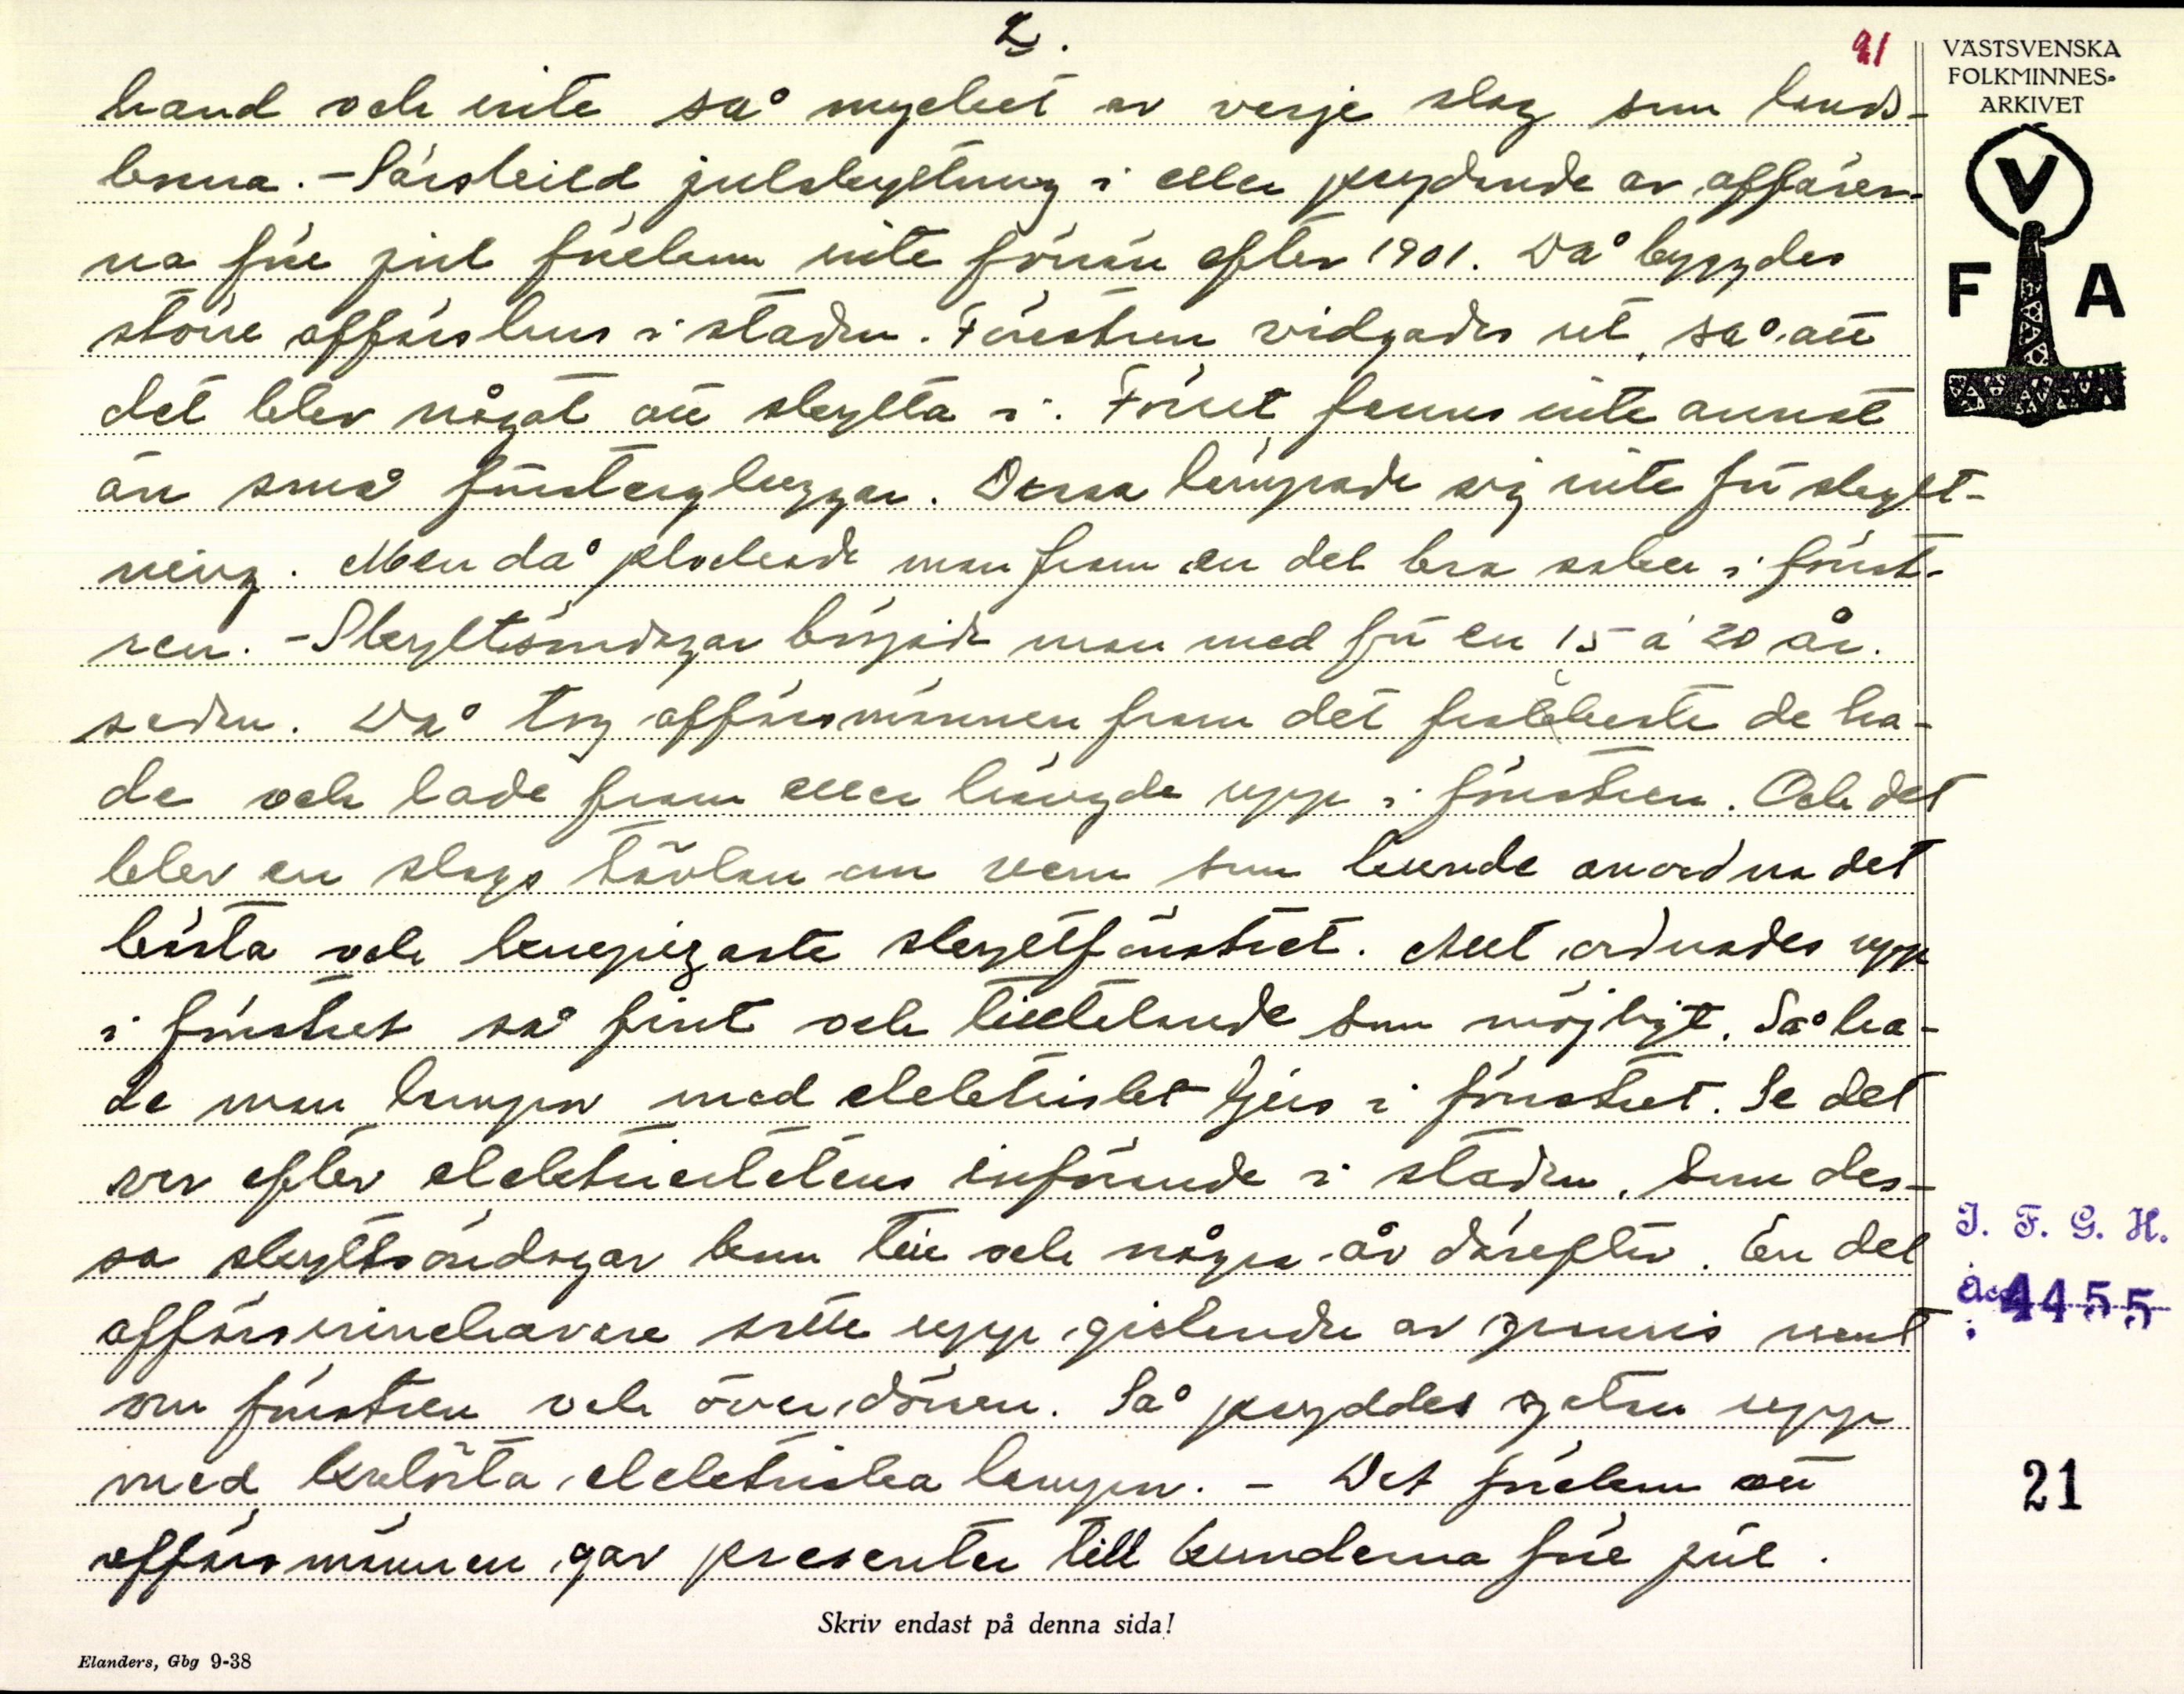 2.
21
VÄSTSVENSKA
FOLKMINNES-
ARKIVET
V
F A
hand och inte så mycket av varje slag som lands-
borna. - Särskild julskyltning i eller prydande av affärer-
na före jul förekom inte förrän efter 1901. Då byggdes
större affärshus i staden. Fönstren vidgades ut, så att
det blev något att skylta i. Förut fanns inte annat
än små fönstergluggar. Dessa lämpade sig inte för skylt-
ning. Men då plockade man fram en del bra saker i fönst-
ren. - Skyltsöndagar började man med för en 15 à 20 år.
sedan. Då tog affärsmännen fram det grannaste de ha-
de och lade fram eller hängde upp i fönstren. Och det
blev en slags tävlan om vem som kunde anordna det
bästa och knepigaste skyltfönstret. Allt ordnades upp
i fönstret så fint och tilltalande som möjligt. Så ha-
de man lampor med elektriskt ljus i fönstret. Se det
var efter elektricitetens införande i staden, som des-
sa skyltsöndagar kom till och några år därefter. En del
affärsinnehavare satte upp girlander av granris runt
om fönstren och över dörren. Så pryddes gatan upp
med kulörta elektriska lampor. - Det förekom att
affärsmännen gav presenter till kunderna före jul.
I. F. G. H.
Acc. 4455
21
Skriv endast på denna sida!
Elanders, Gbg 9-38